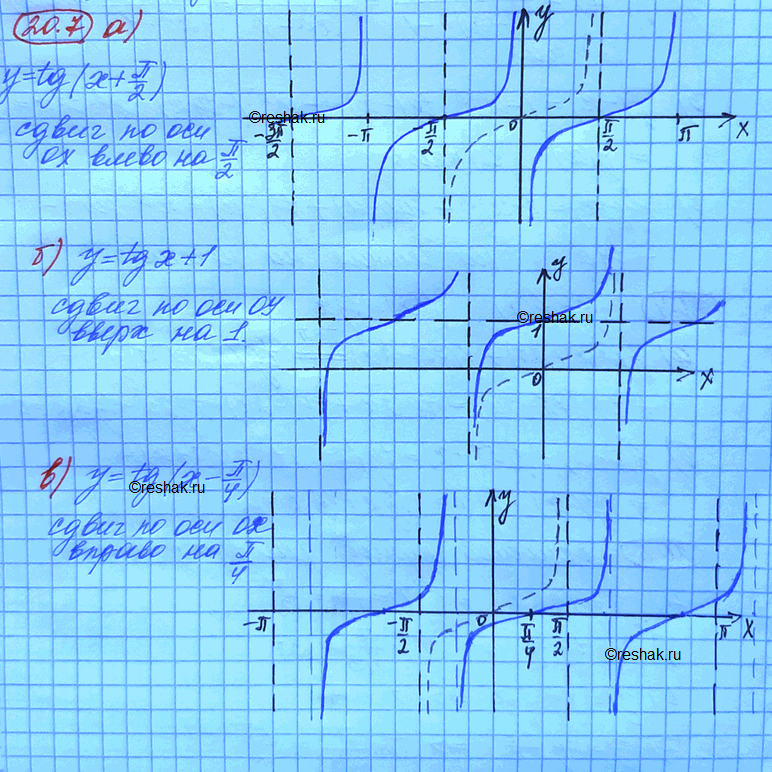 20.7 а)
y = tg(x + π/2)
сдвиг по оси
ох влево на π/2
y
©reshak.ru
-3π/2 -π π/2 0 π/2 π x
б) y = tg x + 1
сдвиг по оси оу
вверх на 1.
y
1 ©reshak.ru
0 x
в) y = tg(x - π/4)
©reshak.ru
сдвиг по оси ох
вправо на π/4
y
-π -π/2 0 π/4 π/2 π x
©reshak.ru